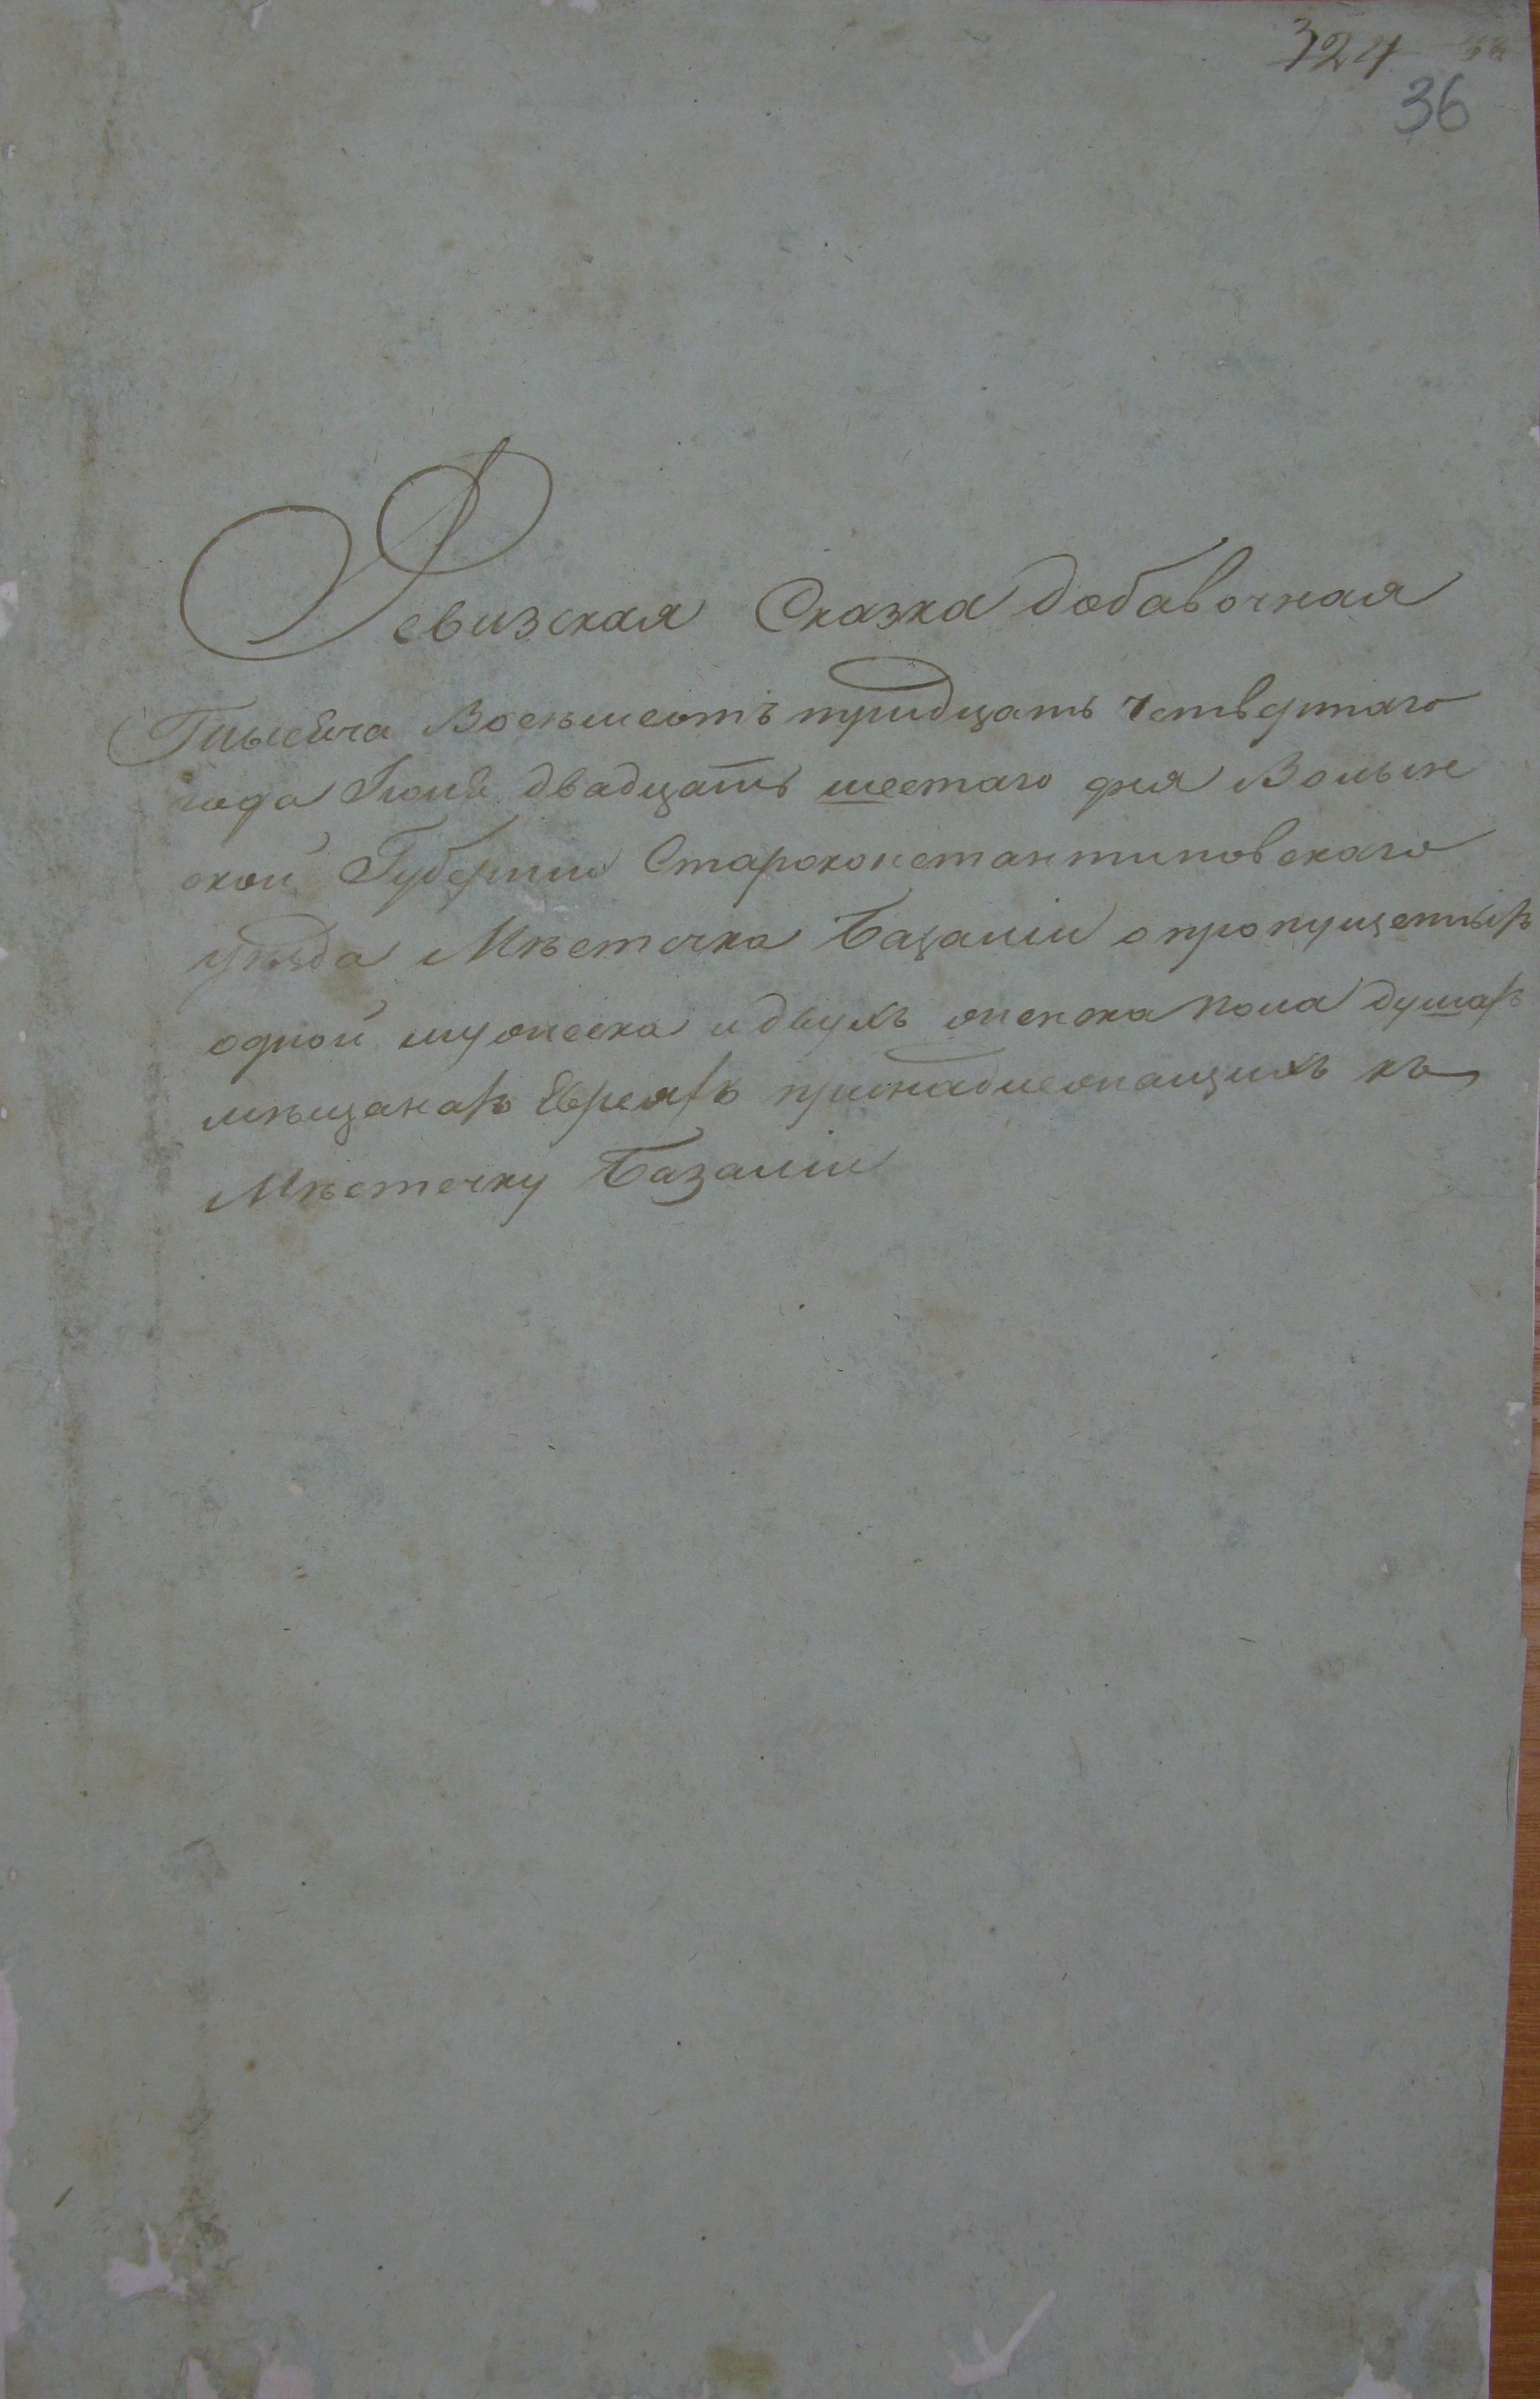 324
36
Ревизская Сказка добавочная
Тысяча Восемьсотъ тридцать Четвертаго
года Іюня двадцать шестаго дня Волын
ской Губерніи Староконстантиновскаго
уѣзда Мѣстечка Базаліи о пропущенныхъ
одной мужеска и двухъ женска пола душахъ
мѣщанахъ Евреяхъ принадлежащихъ къ
Мѣстечку Базаліи